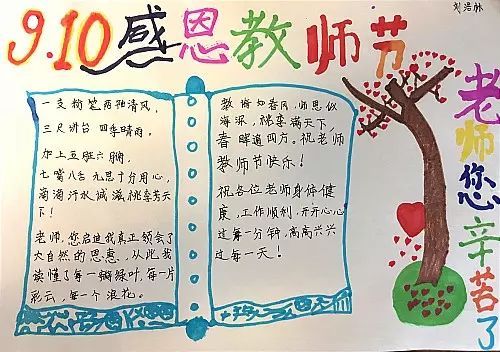 9.10感恩教师节
一支粉笔两袖清风，
三尺讲台 四季晴雨，
加上五脏六腑，
七嘴八舌 九思十分用心，
滴滴汗水诚滋桃李芳天
下！
老师，您启迪我真正领会了
大自然的恩惠，从此我
读懂了每一瓣绿叶，每一片
彩云，每一个浪花。
教诲如春风，师恩似
海深，桃李满天下，
春晖遍四方。祝老师
教师节快乐！
祝各位老师身体健
康，工作顺利，开开心心
过每一分钟，高高兴兴
过每一天！
老师您辛苦了